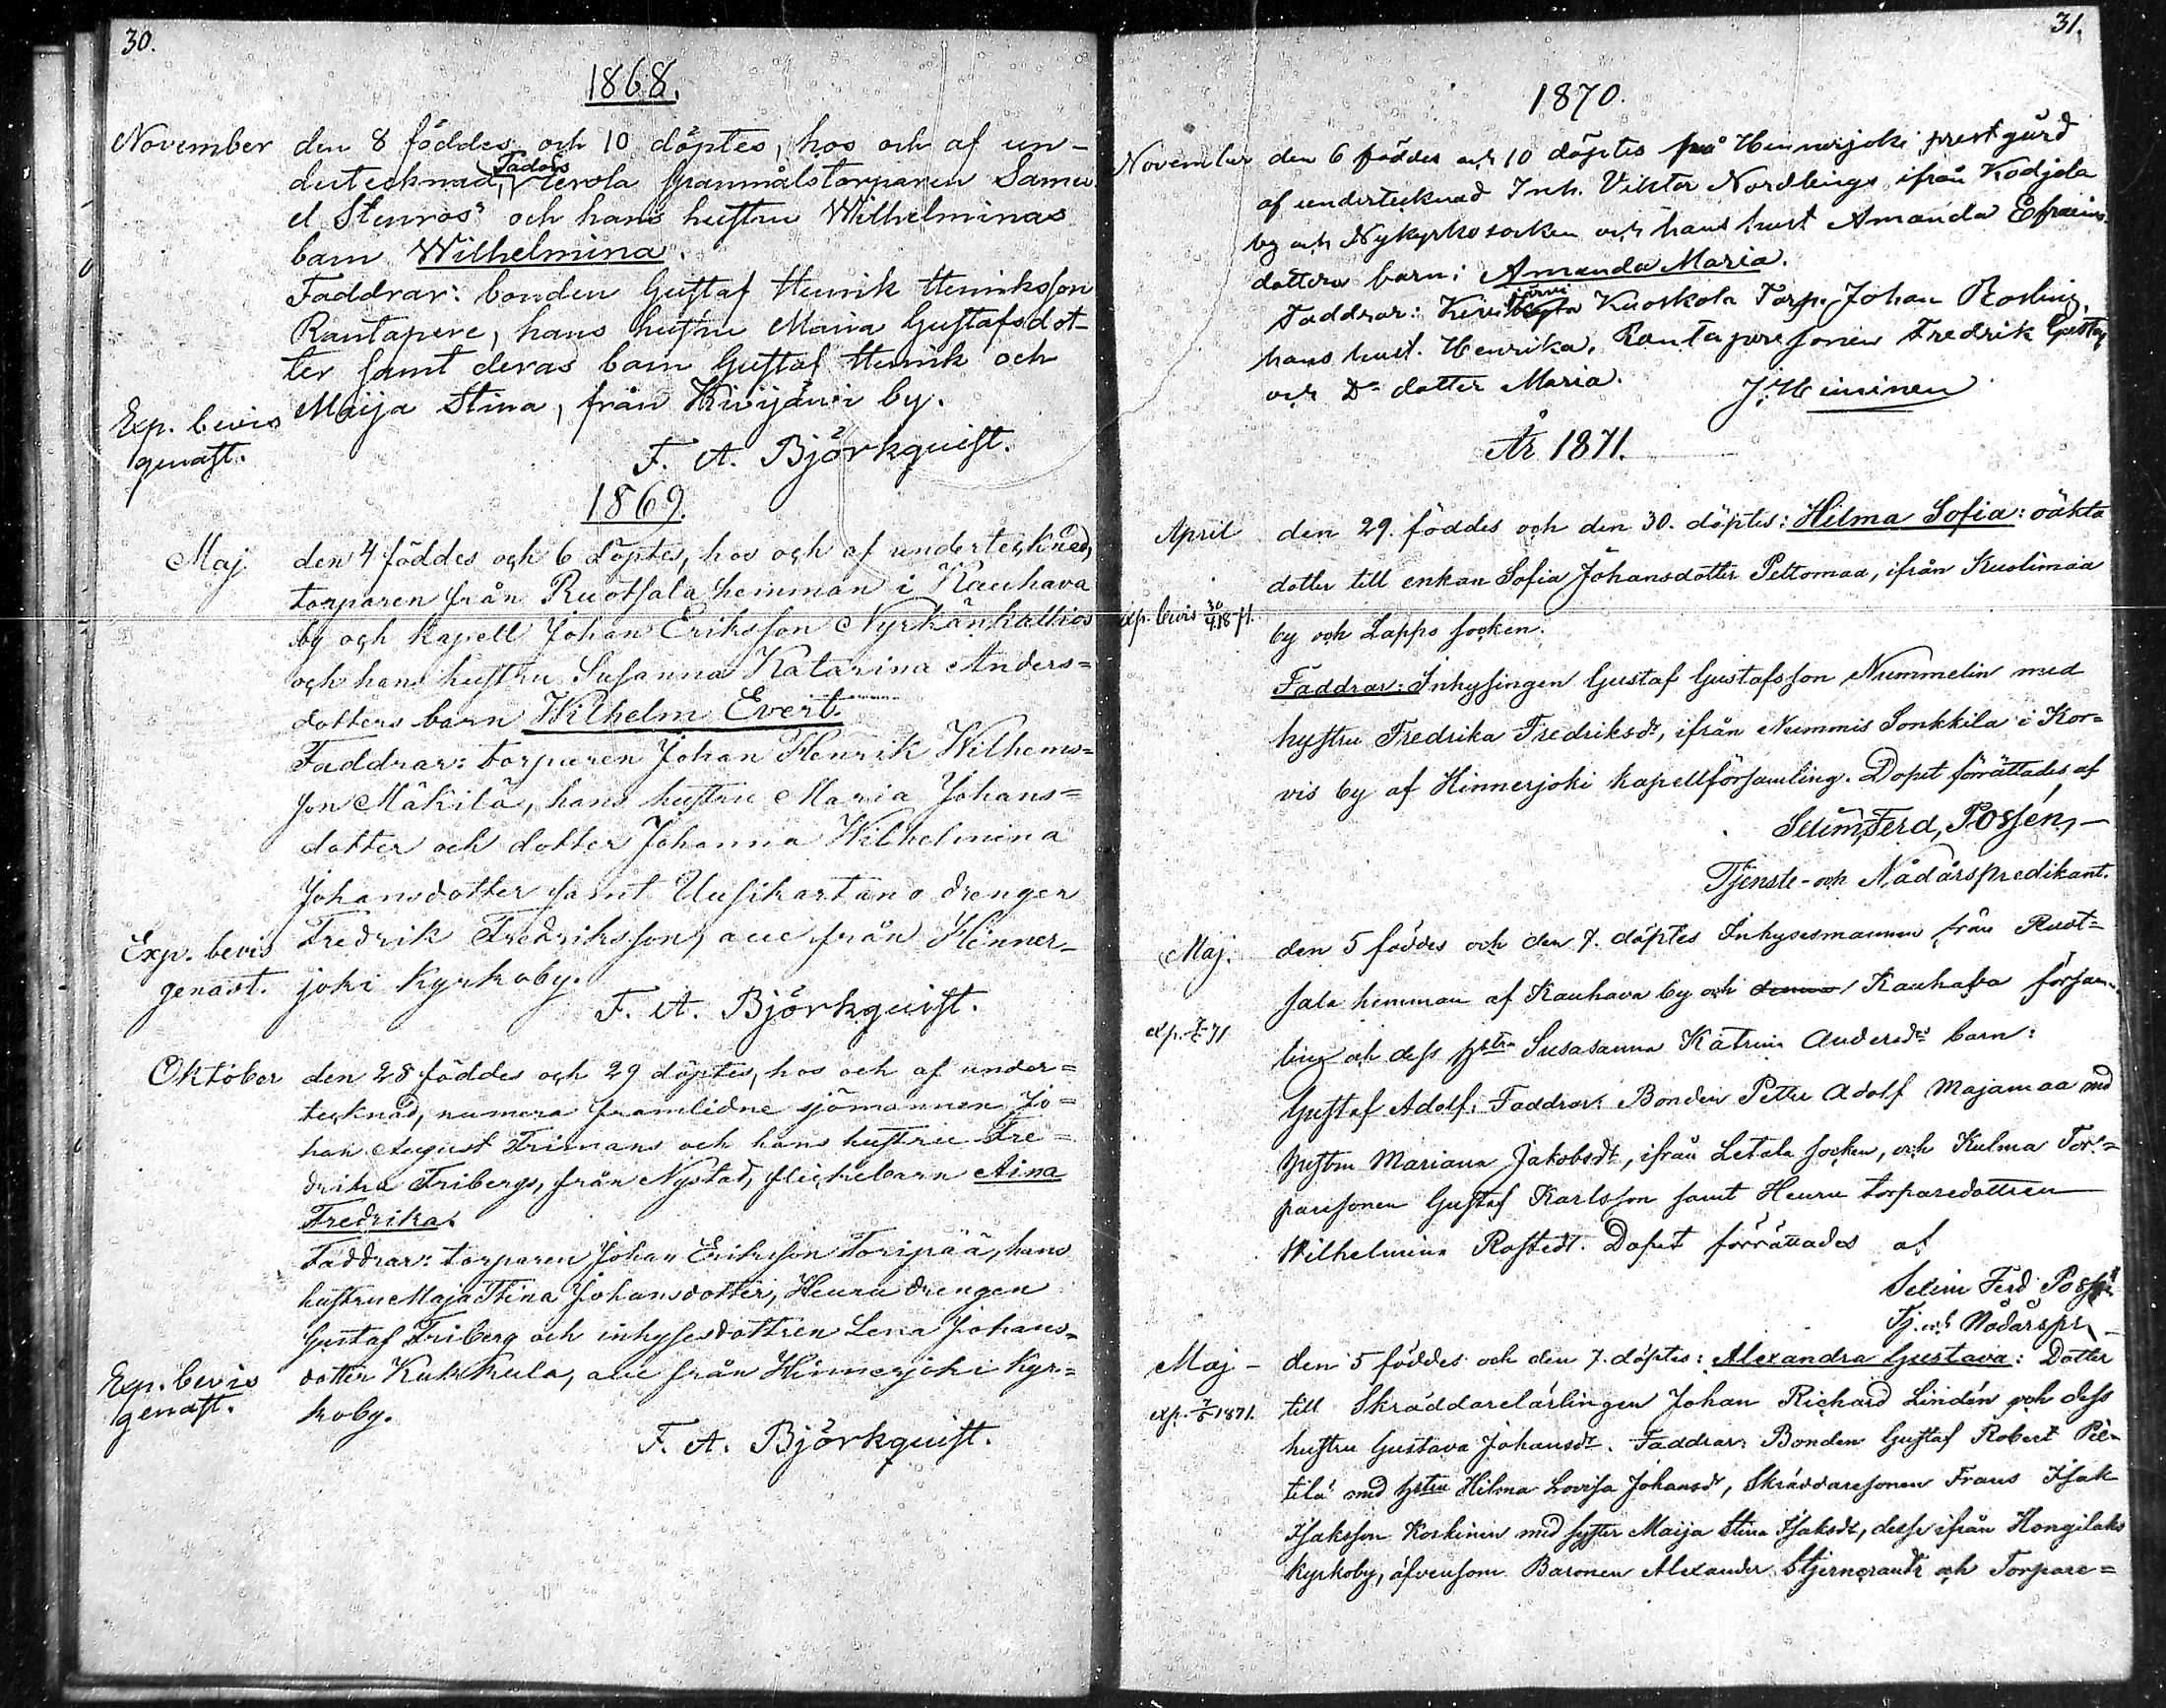 30.
1868.
November den 8 föddes och 10 döptes, hos och af un-
dertecknad, Fadois Yerola granmålstorparen Samu
el Stenros' och hans hustru Wilhelminas
barn Wilhelmina.
Faddrar: bonden Gustaf Henrik Henriksson
Rantapere, hans hustru Maria Gustafsdot-
ter samt deras barn Gustaf Henrik och
Maija Stina, från Kivijärvi by.
Exp. bevis
genast.
F. A. Björkquist.
1869.
Maj. den 4 föddes och 6 döptes, hos och af undertecknad,
torparen från Ruotsala hemman i Kauhava
by och kapell Johan Eriksson Nyrkänkallios
och hans hustru Susanna Katarina Anders=
dotters barn Wilhelm Evert.
Faddrar: torparen Johan Henrik Wilhems=
son Mäkilä, hans hustru Maria Johans=
dotter och dotter Johanna Wilhelmina
Johansdotter samt Uusikartano drengen
Fredrik Fredriksson, alle från Hinner-
joki kyrkoby.
Exp. bevis
genast.
F. A. Björkquist.
Oktober den 28 föddes och 29 döptes, hos och af under=
tecknad, numera framlidne sjömannen Jo=
han August Frimans och hans hustru Fre=
drika Fribergs, från Nystad, flickebarn Aina
Fredrika.
Faddrar: torparen Johan Eriksson Toripää, hans
hustru Maja Stina Johansdotter, Heuru drengen
Gustaf Friberg och inhysesdottren Lena Johans=
dotter Kukkula, alle från Hinnerjoki Kyr=
koby.
Exp. bevis
genast.
F. A. Björkquist.
31.
1870.
November den 6 föddes och 10 döptes på Hinnerjoki prestgård
af undertecknad Inh. Viktor Nordlings ifrån Kodjala
by och Nykyrko socken och hans hust Amanda Efraims
dotters barn: Amanda Maria.
Faddrar: Kivijärvi Kuoskola Torp. Johan Rosling,
hans hust. Henrika, Rantapere sonen Fredrik Gustaf
och Dr dotter Maria.
J. Heininen
År 1871.
April den 29. föddes och den 30. döptes: Hilma Sofia: oäkta
dotter till enkan Sofia Johansdotter Peltomaa, ifrån Kuolimaa
exp. bevis 30/4 18-71. by och Lappo socken.
Faddrar: Inhysingen Gustaf Gustafsson Nummelin med
hustru Fredrika Fredriksdr, ifrån Nummis Sonkkila i Kor=
vis by af Hinnerjoki kapellförsamling. Dopet förrättades af
Selim Ferd, Possén,-
Tjenste- och Nådårspredikant.
Maj. den 5 föddes och den 7. döptes Inhysesmannen från Ruot=
sala hemman af Kauhava by och Kauhava försam-
exp. 7/5 71 ling och dess hstru Susasanna Katrina Andersdrs barn:
Gustaf Adolf. Faddrar: Bonden Petter Adolf Majamaa med
hustru Mariana Jakobsdr, ifrån Letala socken, och Kulma Tor=
paresonen Gustaf Karlsson samt Heuru torparedottren
Wilhelmina Rostedt. Dopet förrättades af
Selim Ferd Possén
Tj. och Nådårspr.
Maj - den 5 föddes och den 7. döptes: Alexandra Gustava: Dotter
exp. 7/5 1871. till Skräddarelärlingen Johan Richard Lindén och dess
hustru Gustava Johansdr. Faddrar: Bonden Gustaf Robert Pil-
tilä med hstru Hilma Lovisa Johansdr, Skräddaresonen Frans Isak
Isaksson Koskinen med syster Maija Stina Isaksdr, desse ifrån Hongilaks
kyrkoby, äfvensom Baronen Alexander Stjerncrantz och Torpare=